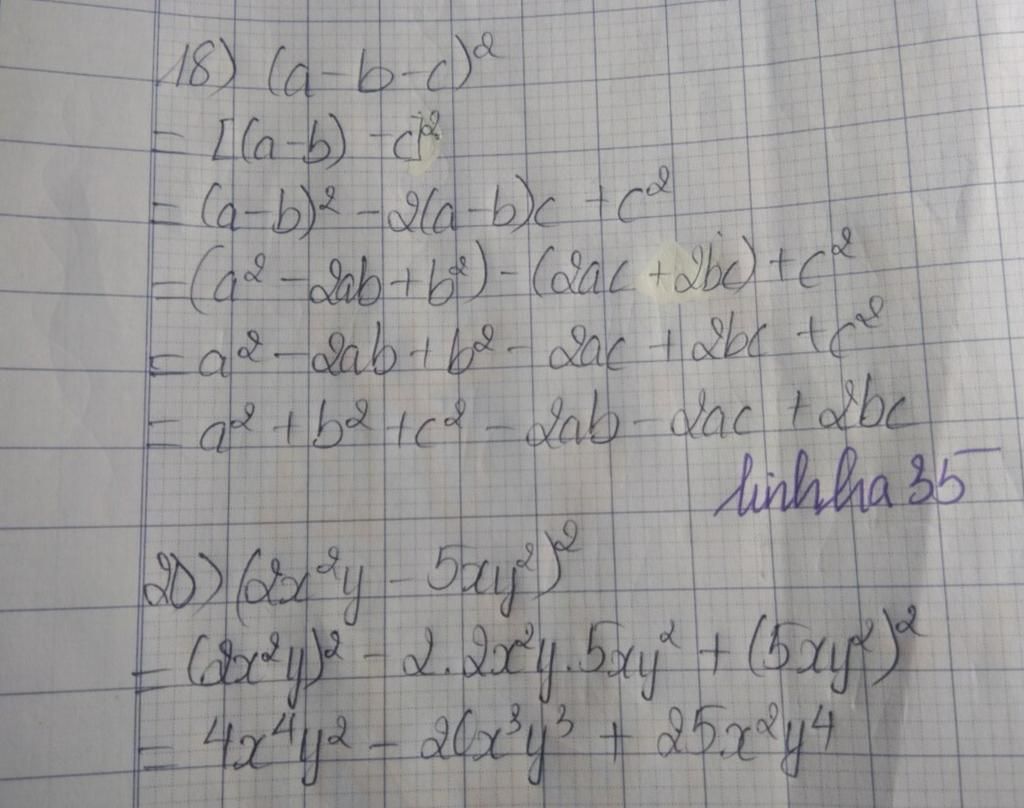 18) (a-b-c)²
= [(a-b) - c]²
= (a-b)² - 2(a-b)c + c²
= (a² - 2ab + b²) - (2ac + 2bc) + c²
= a² - 2ab + b² - 2ac + 2bc + c²
= a² + b² + c² - 2ab - 2ac + 2bc
linhha35
20) (2x²y - 5xy²)²
= (2x²y)² - 2.2x²y.5xy² + (5xy²)²
= 4x⁴y² - 20x³y³ + 25x²y⁴